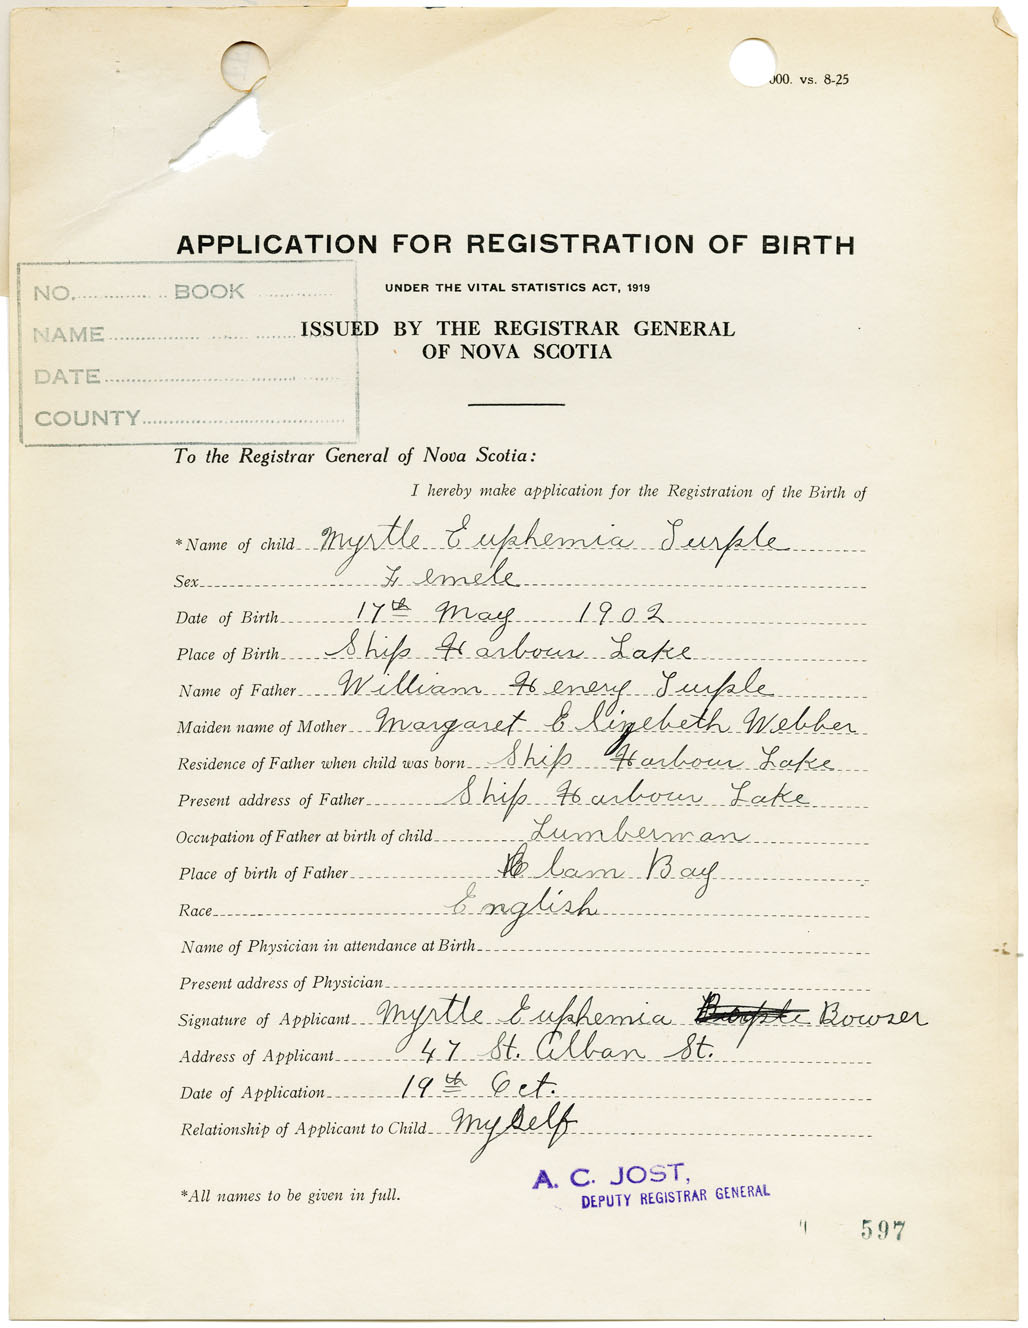 000. vs. 8-25
APPLICATION FOR REGISTRATION OF BIRTH
UNDER THE VITAL STATISTICS ACT, 1919
ISSUED BY THE REGISTRAR GENERAL
OF NOVA SCOTIA
NO. BOOK
NAME
DATE
COUNTY
To the Registrar General of Nova Scotia:
I hereby make application for the Registration of the Birth of
*Name of child Myrtle Euphemia Turple
Sex Femele
Date of Birth 17th May 1902
Place of Birth Ship Harbour Lake
Name of Father William Henery Turple
Maiden name of Mother Margaret Elizebeth Webber
Residence of Father when child was born Ship Harbour Lake
Present address of Father Ship Harbour Lake
Occupation of Father at birth of child Lumberman
Place of birth of Father Clam Bay
Race English
Name of Physician in attendance at Birth
Present address of Physician
Signature of Applicant Myrtle Euphemia Bowser
Address of Applicant 47 St. Alban St.
Date of Application 19th Oct.
Relationship of Applicant to Child My Self
*All names to be given in full.
A. C. JOST,
DEPUTY REGISTRAR GENERAL
597